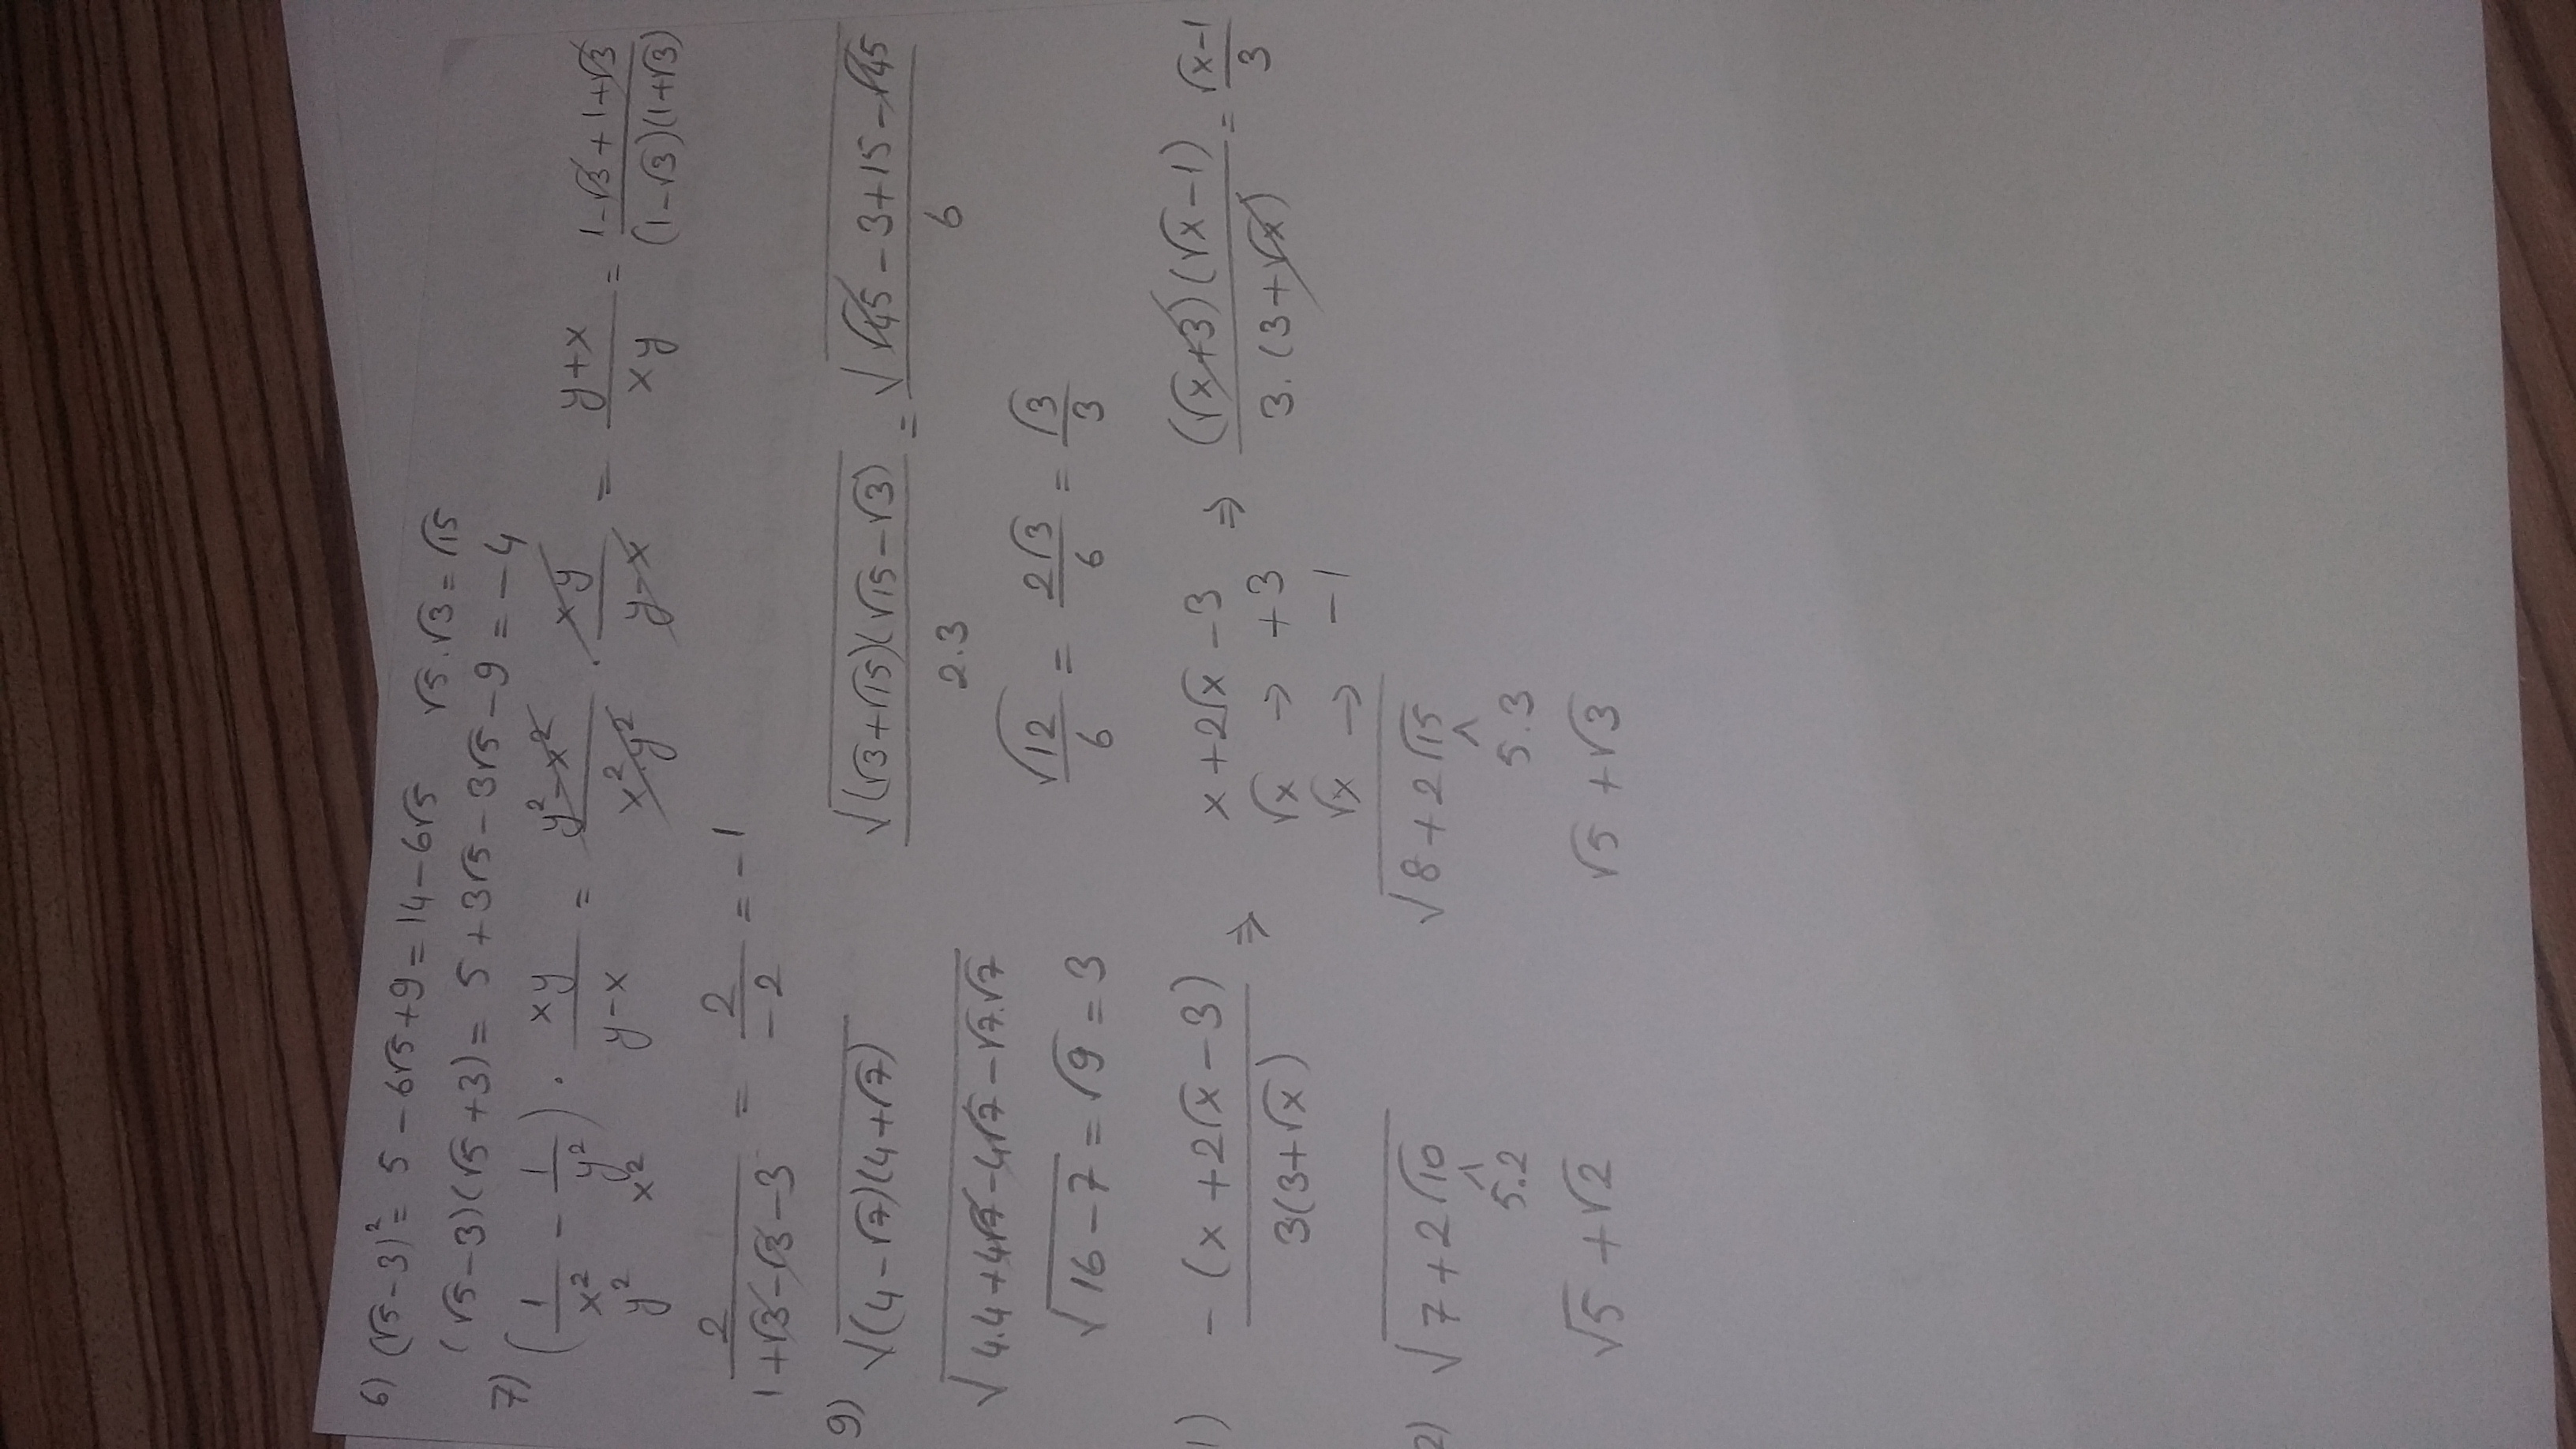 6) (√5-3)² = 5-6√5+9 = 14-6√5 √5.√3=√15
(√5-3)(√5+3) = 5+3√5-3√5-9 = -4
7) (1/x² - 1/y²) . xy/(y-x) = (y²-x²)/(x².y²) . xy/(y-x) = (y+x)/(xy) = (1-√3+1+√3)/((1-√3)(1+√3))
y² x²
2/(1+√3-√3-3) = 2/-2 = -1
9) √((4-√7)(4+√7)) √((√3+√15)(√15-√3))/2.3 = √(√45-3+15-√45)/6
√(4.4+4√7-4√7-√7.√7) √12/6 = 2√3/6 = √3/3
√(16-7) = √9 = 3
1) -(x+2√x-3)/(3(3+√x)) ⇒ x+2√x-3 ⇒ ((√x+3)(√x-1))/(3.(3+√x)) = (√x-1)/3
√x → +3
√x → -1
2) √(7+2√10) √(8+2√15)
5.2 5.3
√5+√2 √5+√3